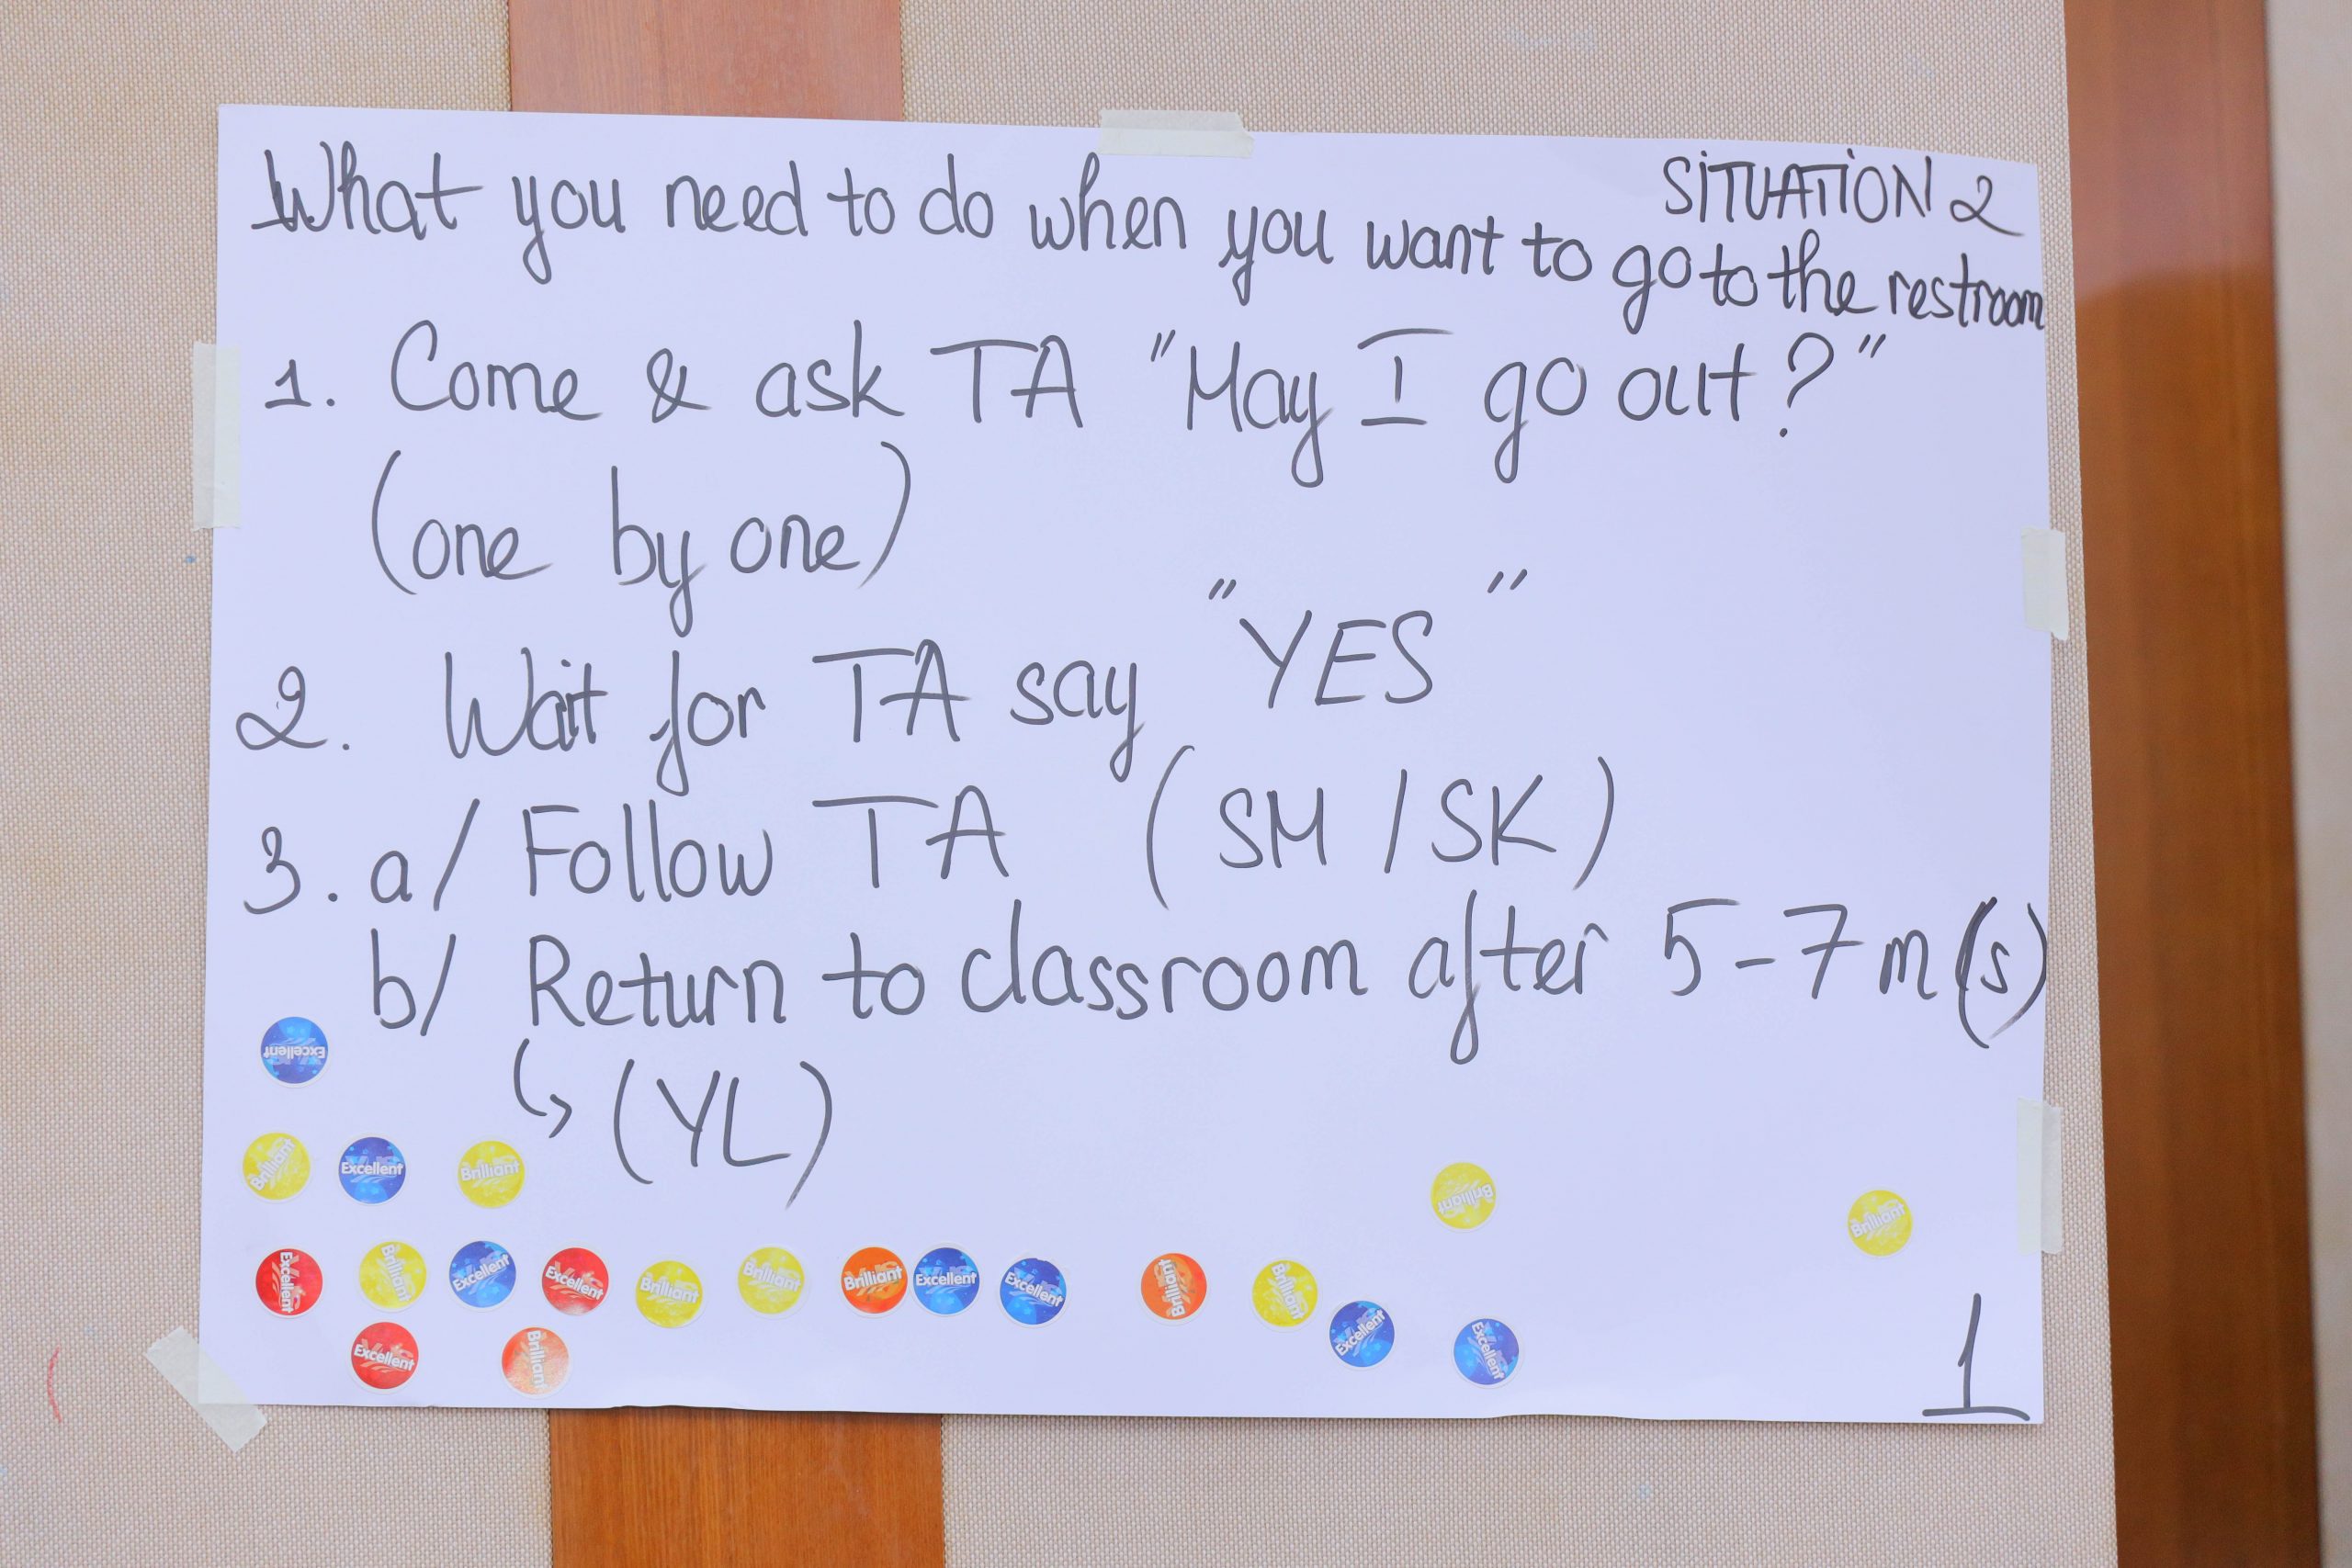 SITUATION 2
What you need to do when you want to go to the restroom
1. Come & ask TA "May I go out?"
(one by one)
2. Wait for TA say "YES"
3. a/ Follow TA (SM / SK)
b/ Return to classroom after 5-7 m(s)
↳ (YL)
Excellent
Brilliant Excellent Brilliant Brilliant Brilliant
Excellent Brilliant Excellent Excellent Brilliant Brilliant Brilliant Excellent Excellent Brilliant Brilliant Excellent Excellent
Excellent Brilliant
1